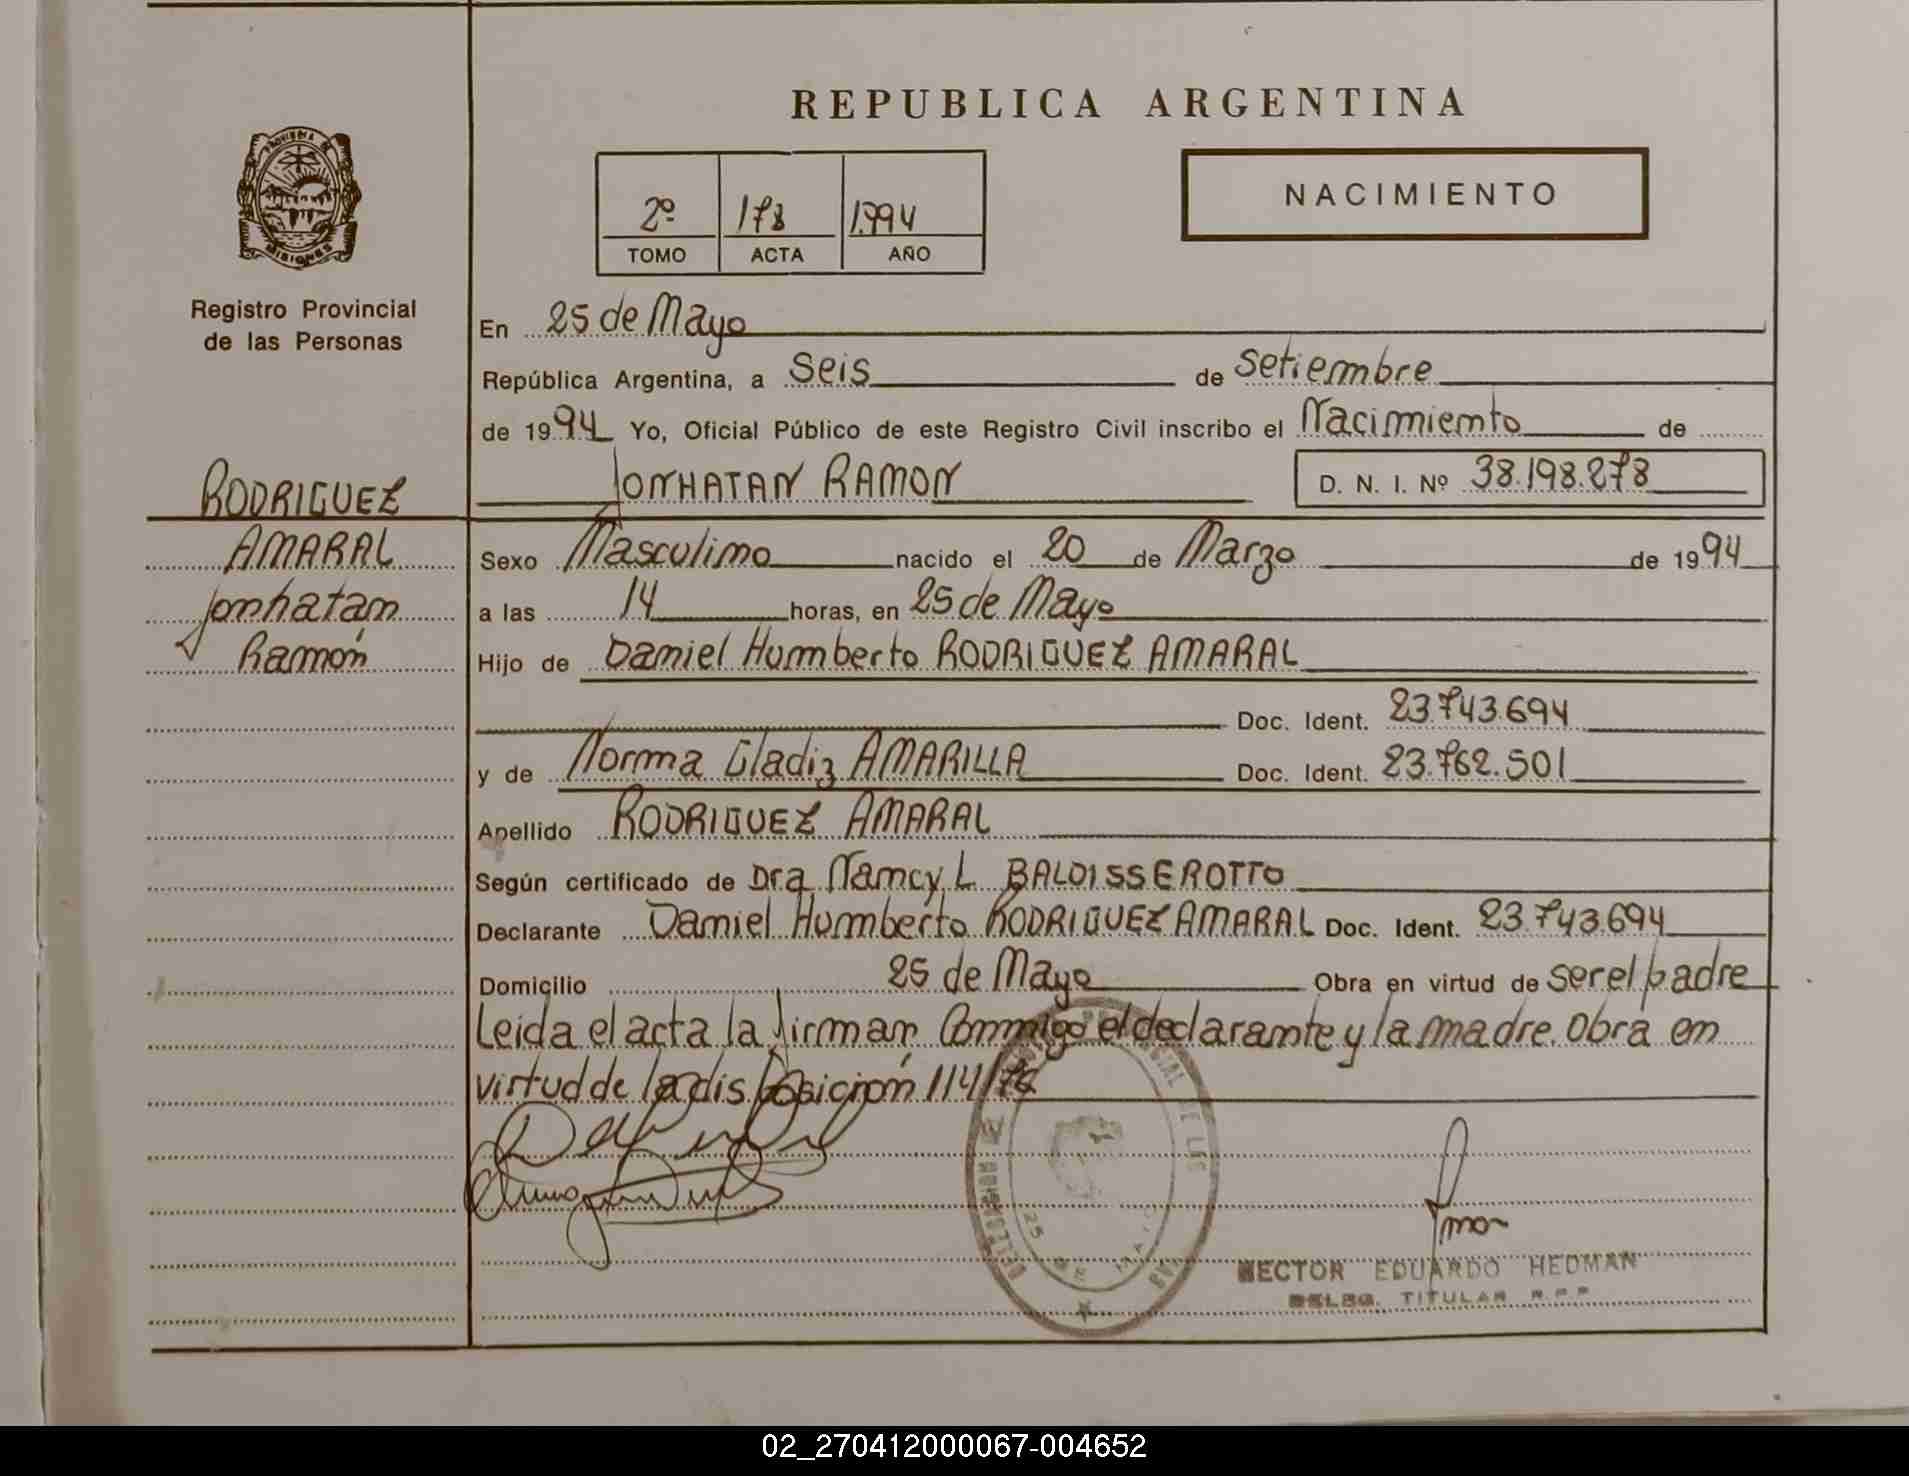 REPUBLICA ARGENTINA
PROVINCIA DE
MISIONES
Registro Provincial
de las Personas
2º 178 1.994
TOMO ACTA AÑO
NACIMIENTO
En 25 de Mayo
República Argentina, a Seis de Setiembre
de 1994 Yo, Oficial Público de este Registro Civil inscribo el Nacimiento de
JONHATAN RAMON D. N. I. Nº 38.198.278
RODRIGUEZ
AMARAL
Jonhatan
Ramón
Sexo Masculino nacido el 20 de Marzo de 1994
a las 14 horas, en 25 de Mayo
Hijo de Daniel Humberto RODRIGUEZ AMARAL
Doc. Ident. 23.743.694
y de Norma Gladiz AMARILLA Doc. Ident. 23.762.501
Apellido RODRIGUEZ AMARAL
Según certificado de Dra Nancy L. BALDISSEROTTO
Declarante Daniel Humberto RODRIGUEZ AMARAL Doc. Ident. 23.743.694
Domicilio 25 de Mayo Obra en virtud de ser el padre
Leida el acta la firman Conmigo el declarante y la madre. Obra en
virtud de la disposición 114/
25 DE MAYO
HECTOR EDUARDO HEDMAN
DELEG. TITULAR R.P.P.
02_270412000067-004652